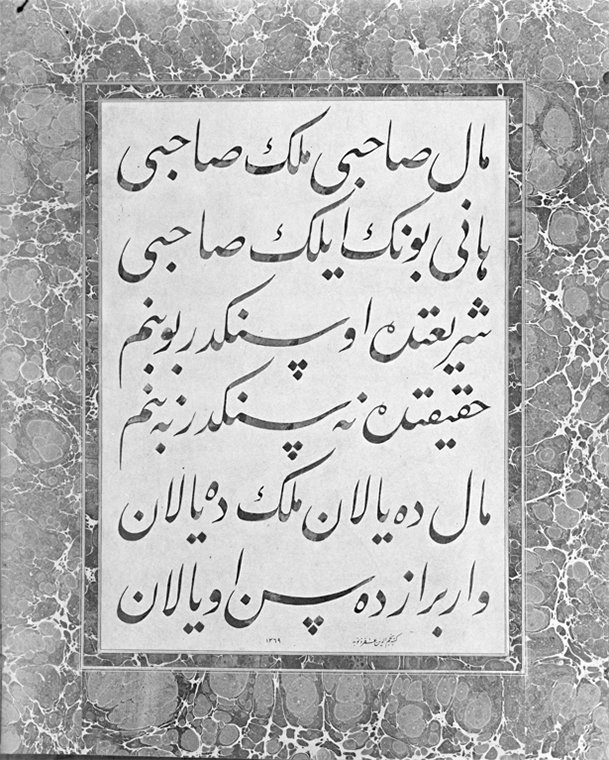 مال صاحبی ملك صاحبی
هانی بونك ایلك صاحبی
شریعتده او سنكدر بو بنم
حقیقتده نه سنكدر نه بنم
مال ده یالان ملك ده یالان
وار براز ده سن اویالان
كتبه نجم الدین غفر ذنوبه ١٣٦٩